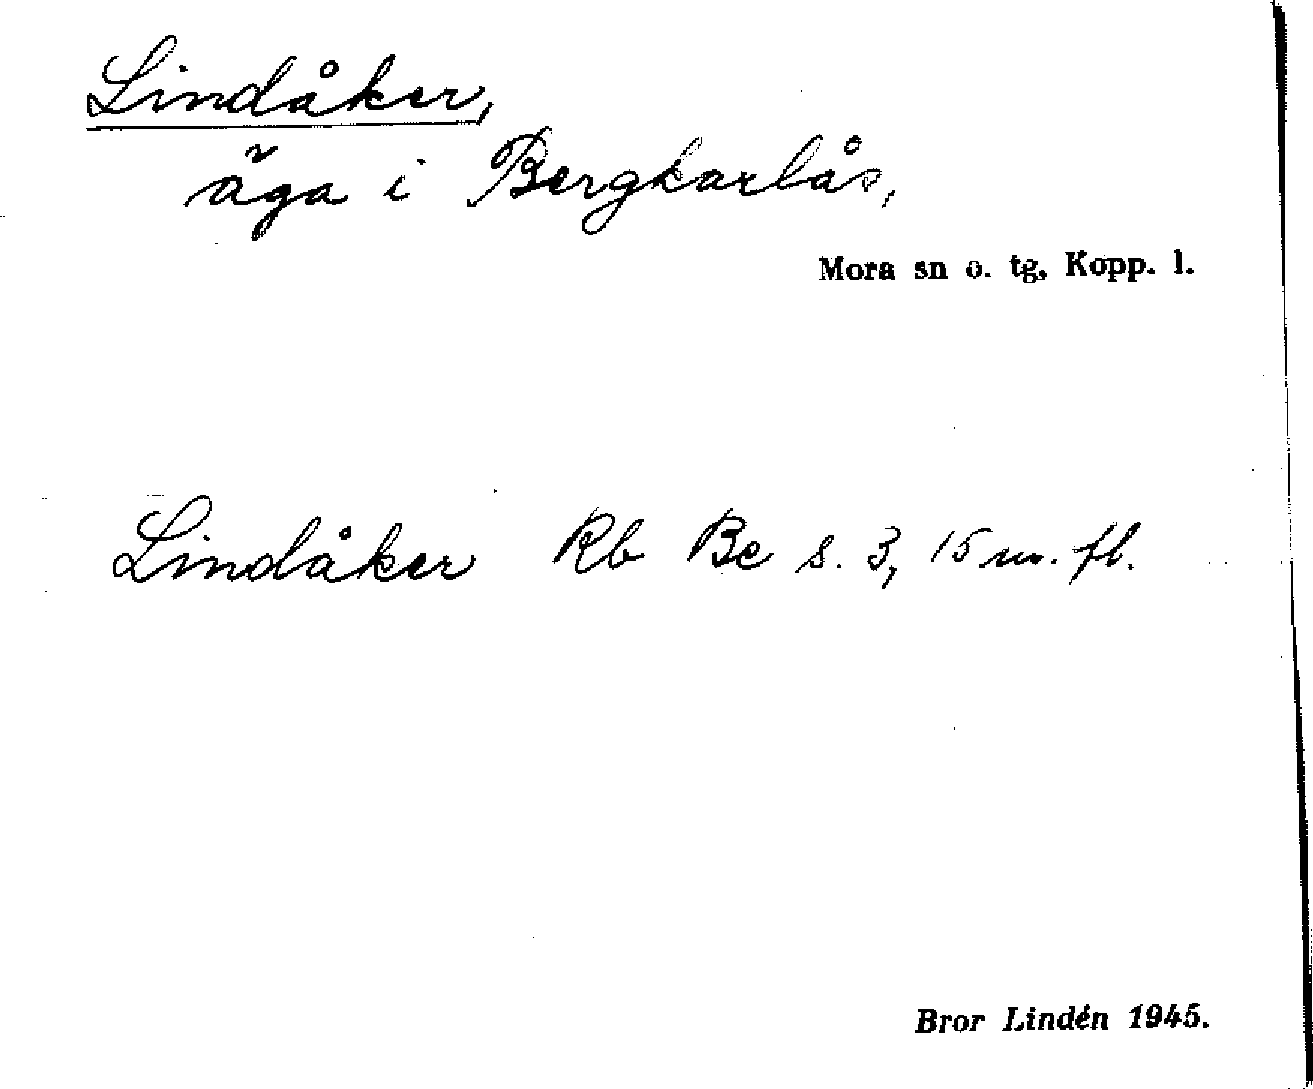 Lindåker,
äga i Bergkarlås,
Mora sn o. tg. Kopp. l.
Lindåker Rb Be s. 3, 15 m. fl.
Bror Lindén 1945.